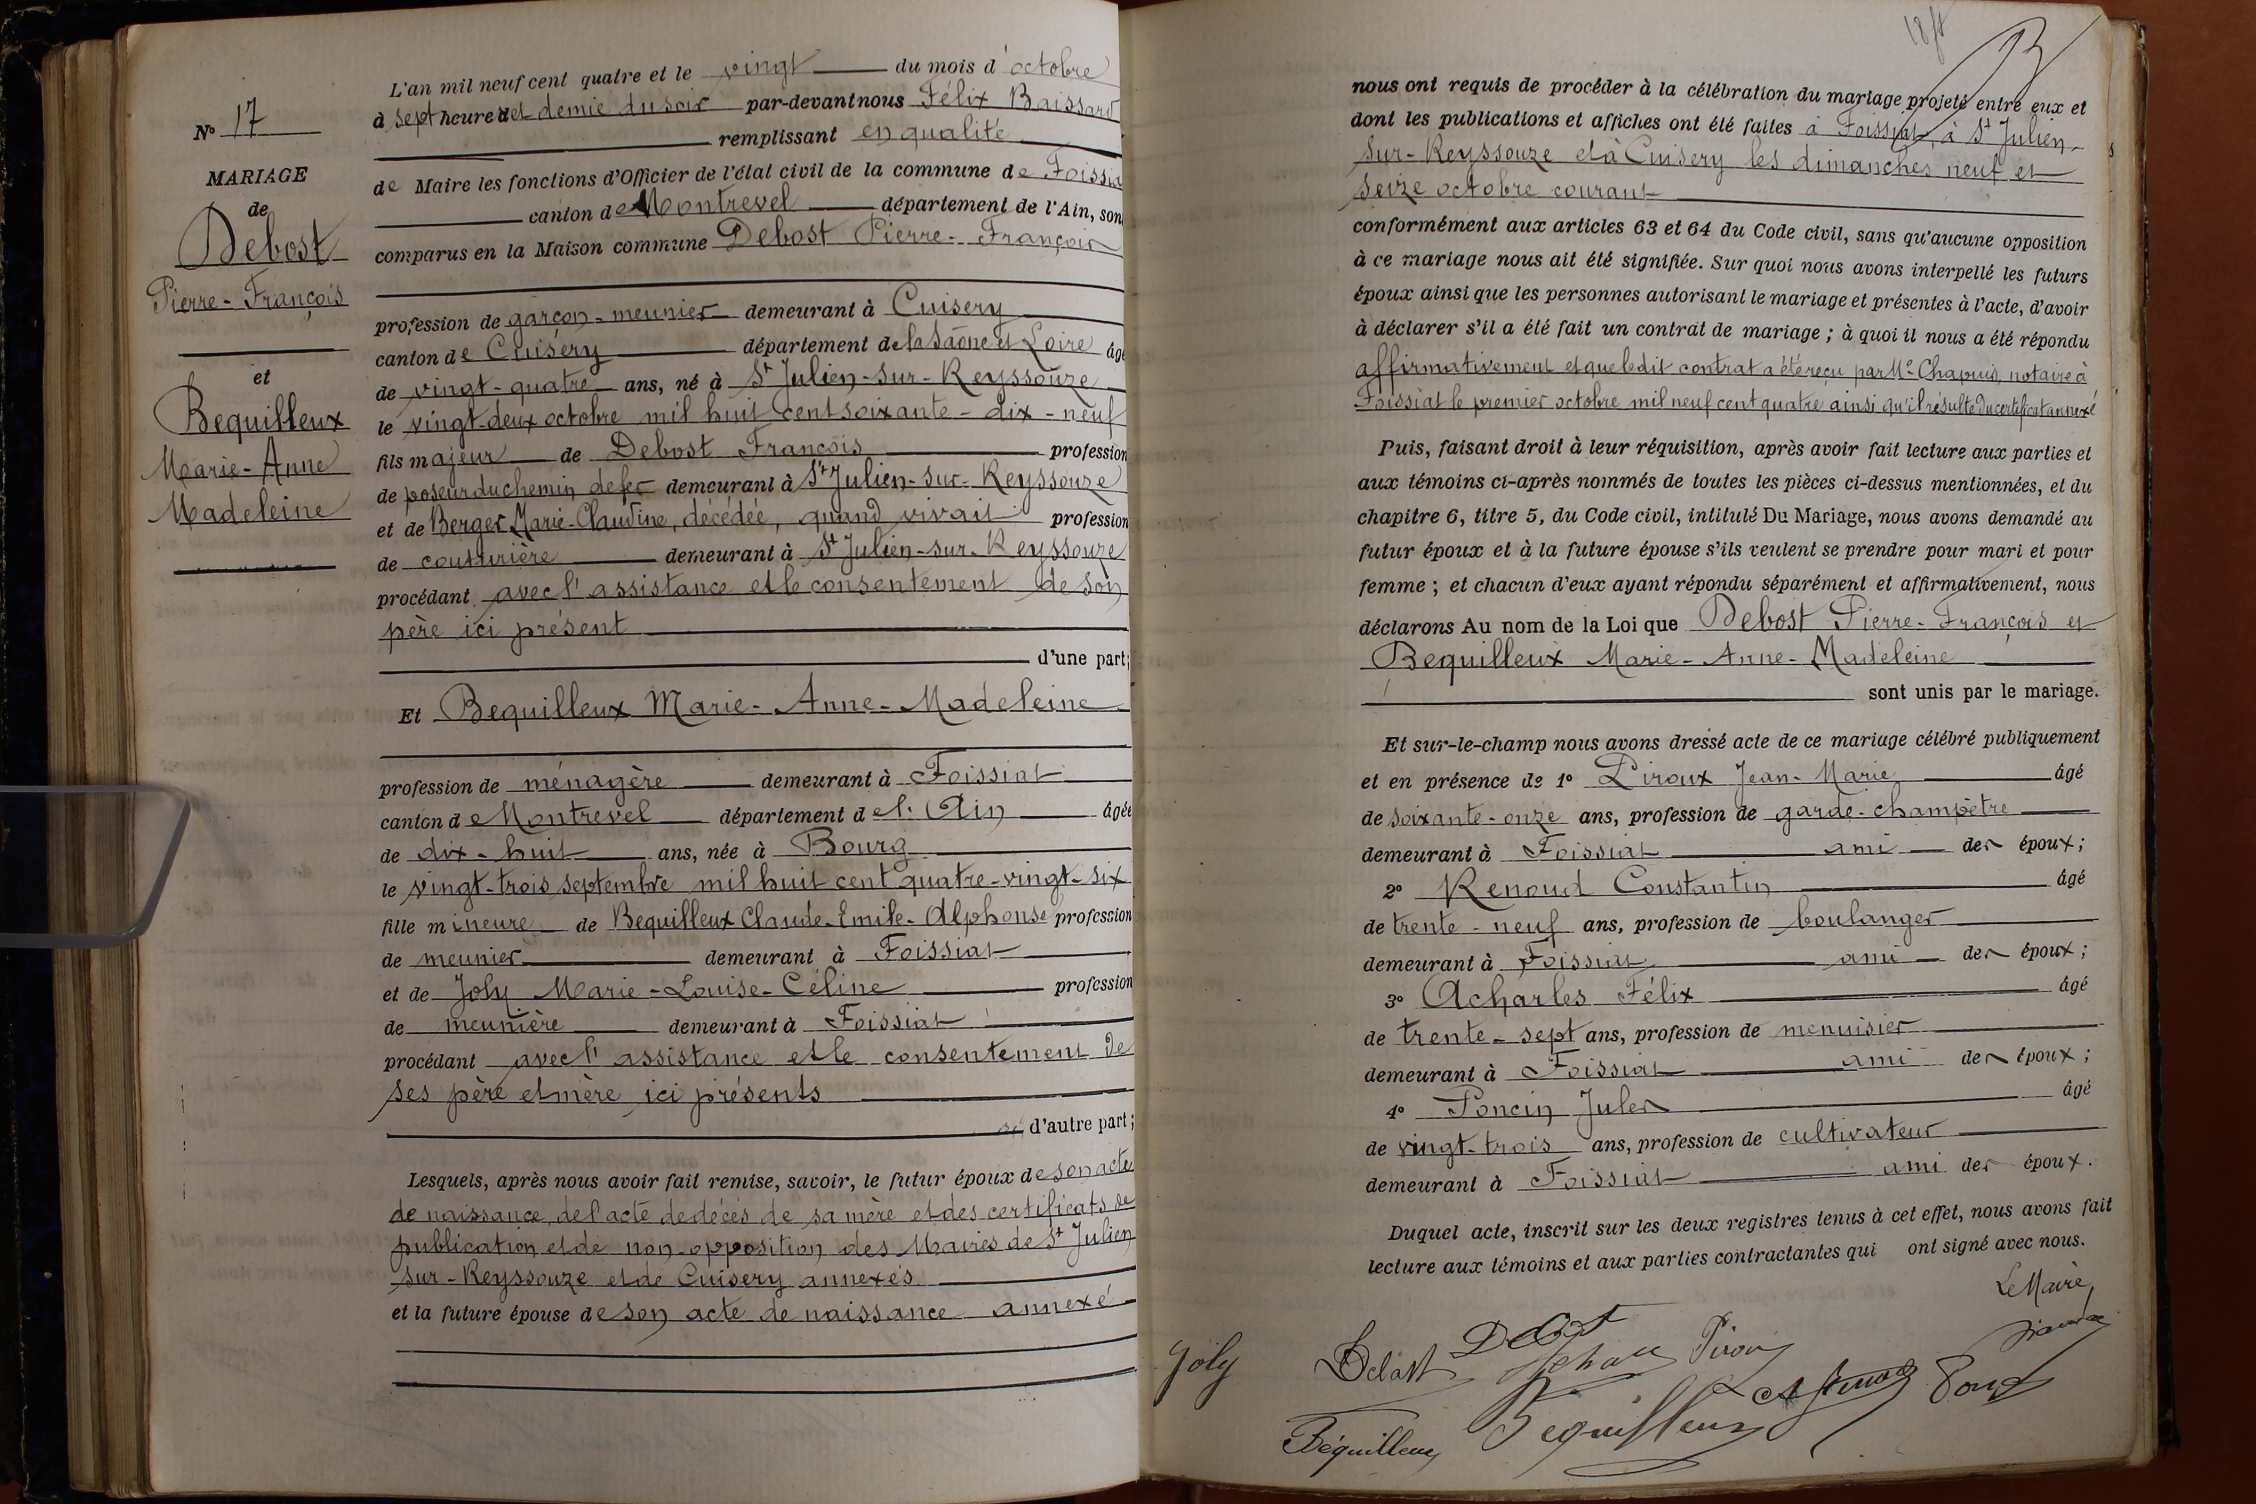 N° 17
MARIAGE
de
Debost
Pierre-François
et
Bequilleux
Marie-Anne
Madeleine
L'an mil neuf cent quatre et le vingt du mois d'octobre
à sept heures et demie du soir par-devant nous Félix Baissard
remplissant en qualité
de Maire les fonctions d'Officier de l'état civil de la commune de Foissia
canton de Montrevel département de l'Ain, son
comparus en la Maison commune Debost Pierre-François
profession de garçon-meunier demeurant à Cuisery
canton de Cuisery département de la Saône et Loire âgé
de vingt-quatre ans, né à St Julien-sur-Reyssouze
le vingt-deux octobre mil huit cent soixante-dix-neuf
fils majeur de Debost François profession
de poseur du chemin de fer demeurant à St Julien-sur-Reyssouze
et de Berger Marie-Claudine, décédée, quand vivait profession
de couturière demeurant à St Julien-sur-Reyssouze
procédant avec l'assistance et le consentement de son
père ici présent
d'une part;
Et Bequilleux Marie-Anne-Madeleine
profession de ménagère demeurant à Foissiat
canton de Montrevel département de l'Ain âgée
de dix-huit ans, née à Bourg
le vingt-trois septembre mil huit cent quatre-vingt-six
fille mineure de Bequilleux Claude-Emile-Alphonse profession
de meunier demeurant à Foissiat
et de Joly Marie-Louise-Céline profession
de meunière demeurant à Foissiat
procédant avec l'assistance et le consentement de
ses père et mère ici présents
d'autre part;
Lesquels, après nous avoir fait remise, savoir, le futur époux de son acte
de naissance, de l'acte de décès de sa mère et des certificats de
publication et de non-opposition des Mairies de St Julien
sur-Reyssouze et de Cuisery annexés
et la future épouse de son acte de naissance annexé
nous ont requis de procéder à la célébration du mariage projeté entre eux et
dont les publications et affiches ont été faites à Foissiat, à St Julien-
sur-Reyssouze et à Cuisery les dimanches neuf et
seize octobre courant
conformément aux articles 63 et 64 du Code civil, sans qu'aucune opposition
à ce mariage nous ait été signifiée. Sur quoi nous avons interpellé les futurs
époux ainsi que les personnes autorisant le mariage et présentes à l'acte, d'avoir
à déclarer s'il a été fait un contrat de mariage ; à quoi il nous a été répondu
affirmativement et que ledit contrat a été reçu par Me Chapuis, notaire à
Foissiat le premier octobre mil neuf cent quatre ainsi qu'il résulte du certificat annexé
Puis, faisant droit à leur réquisition, après avoir fait lecture aux parties et
aux témoins ci-après nommés de toutes les pièces ci-dessus mentionnées, et du
chapitre 6, titre 5, du Code civil, intitulé Du Mariage, nous avons demandé au
futur époux et à la future épouse s'ils veulent se prendre pour mari et pour
femme ; et chacun d'eux ayant répondu séparément et affirmativement, nous
déclarons Au nom de la Loi que Debost Pierre-François et
Bequilleux Marie-Anne-Madeleine
sont unis par le mariage.
Et sur-le-champ nous avons dressé acte de ce mariage célébré publiquement
et en présence de 1° Piroux Jean-Marie âgé
de soixante-onze ans, profession de garde-champêtre
demeurant à Foissiat ami des époux;
2° Renoud Constantin âgé
de trente-neuf ans, profession de boulanger
demeurant à Foissiat ami des époux;
3° Acharles Félix âgé
de trente-sept ans, profession de menuisier
demeurant à Foissiat ami des époux;
4° Poncin Jules âgé
de vingt-trois ans, profession de cultivateur
demeurant à Foissiat ami des époux.
Duquel acte, inscrit sur les deux registres tenus à cet effet, nous avons fait
lecture aux témoins et aux parties contractantes qui ont signé avec nous.
Le Maire,
Joly Debost Debost Piroux
Béquilleux Bequilleux